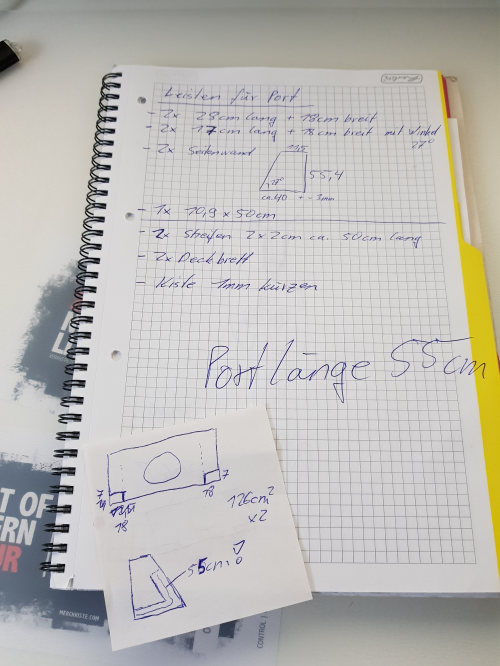 Leisten für Port
- 2x 28cm lang + 18cm breit
- 2x 17cm lang + 18cm breit mit Winkel
27°
- 2x Seitenwand
55,4
ca. 40 + - 3mm
- 1x 10,9 x 50cm
- 2x Streifen 2x2cm ca. 50cm lang
- 2x Deckbrett
- Kiste 1mm kürzen
Portlänge 55cm
7
7
18
18
126cm²
x2
55cm